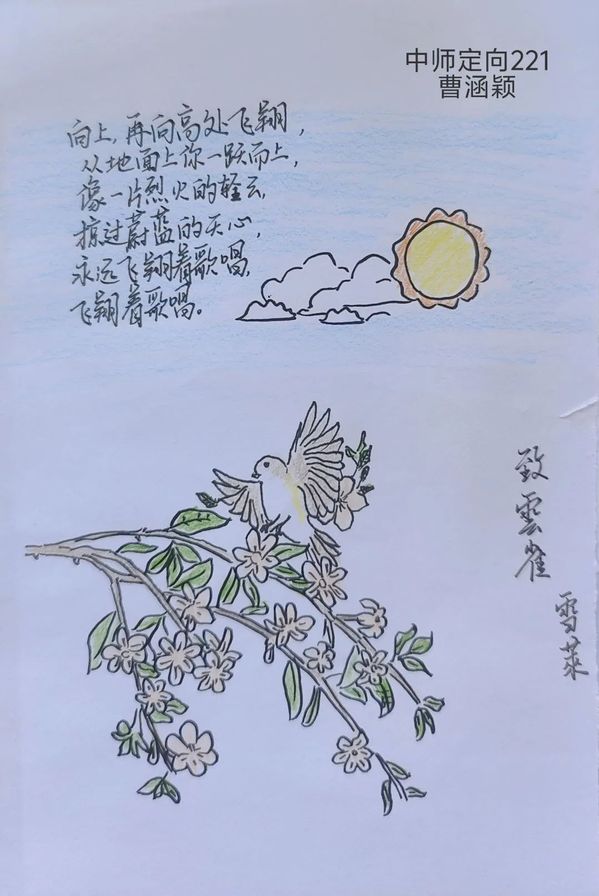 中师定向221
曹涵颖
向上,再向高处飞翔,
从地面上你一跃而上,
像一片烈火的轻云,
掠过蔚蓝的天心,
永远飞翔着歌唱,
飞翔着歌唱。
致雲雀
雪萊